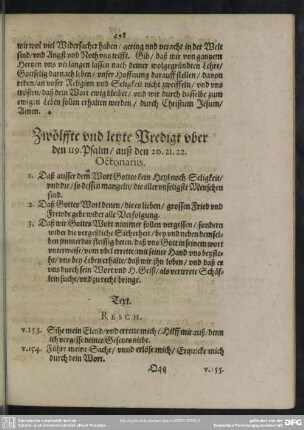 498
wir wol viel Widersacher haben/ gering und veracht in der Welt
sind/ und Angst und Noth uns trifft. Gib/ daß wir von gantzem
Hertzen uns verlangen lassen nach deiner wolgegründten Lehre/
Gottselig darnach leben/ unser Hoffnung darauff stellen/ davon
reden/ an unser Religion und Seligkeit nicht zweiffeln/ und uns
trösten/ daß dein Wort ewig bleibet/ und wir durch dasselbe zum
ewigen Leben sollen erhalten werden/ durch Christum Jesum/
Amen.
Zwölffte vnd letzte Predigt vber
den 119. Psalm/ auß den 20. 21. 22.
Octonarius.
1. Daß ausser dem Wort Gottes kein Heyl noch Seligkeit/
und die/ so dessen mangeln/ die aller unseligste Menschen
sind.
2. Daß Gottes Wort denen/ die es lieben/ grossen Fried und
Frewde gebe wider alle Verfolgung.
3. Daß wir Gottes Wort nimmer sollen vergessen/ sondern
wider die vergeßliche Sicherheit/ bey und neben demsel-
ben immerdar fleissig beten/ daß uns Gott in seinem wort
unterweise/ vom ubel errette/ mit seiner Hand uns beyste-
he/ uns bey Leben erhalte/ daß wir ihn loben/ und daß er
uns durch sein Wort und H. Geist/ als verirrete Schäf-
lein suche/ und zu recht bringe.
Text.
RESCH.
v.153. Sihe mein Elend/ und errette mich/ Hilff mir auß/ denn
ich vergisse deines Gesetzes nicht.
v.154. Führe meine Sache/ und erlöse mich/ Erquicke mich
durch dein Wort.
Qqq
v.155.